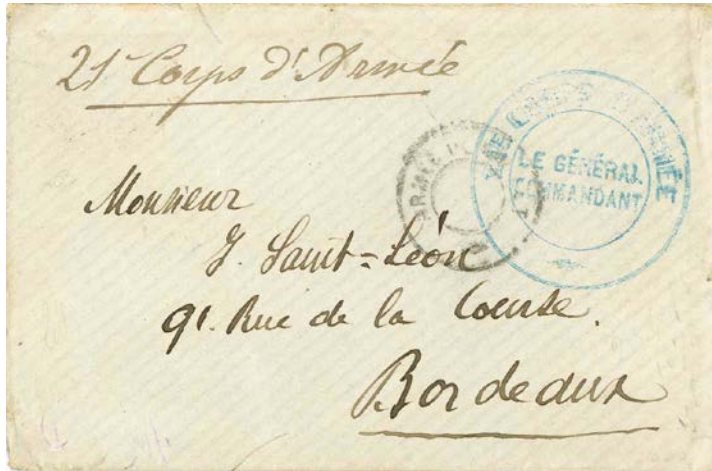 21e Corps d'Armée
XXIE CORPS D'ARMÉE
LE GÉNÉRAL
COMMANDANT
Monsieur
J. Saint=Léon
91. Rue de la Course.
Bordeaux